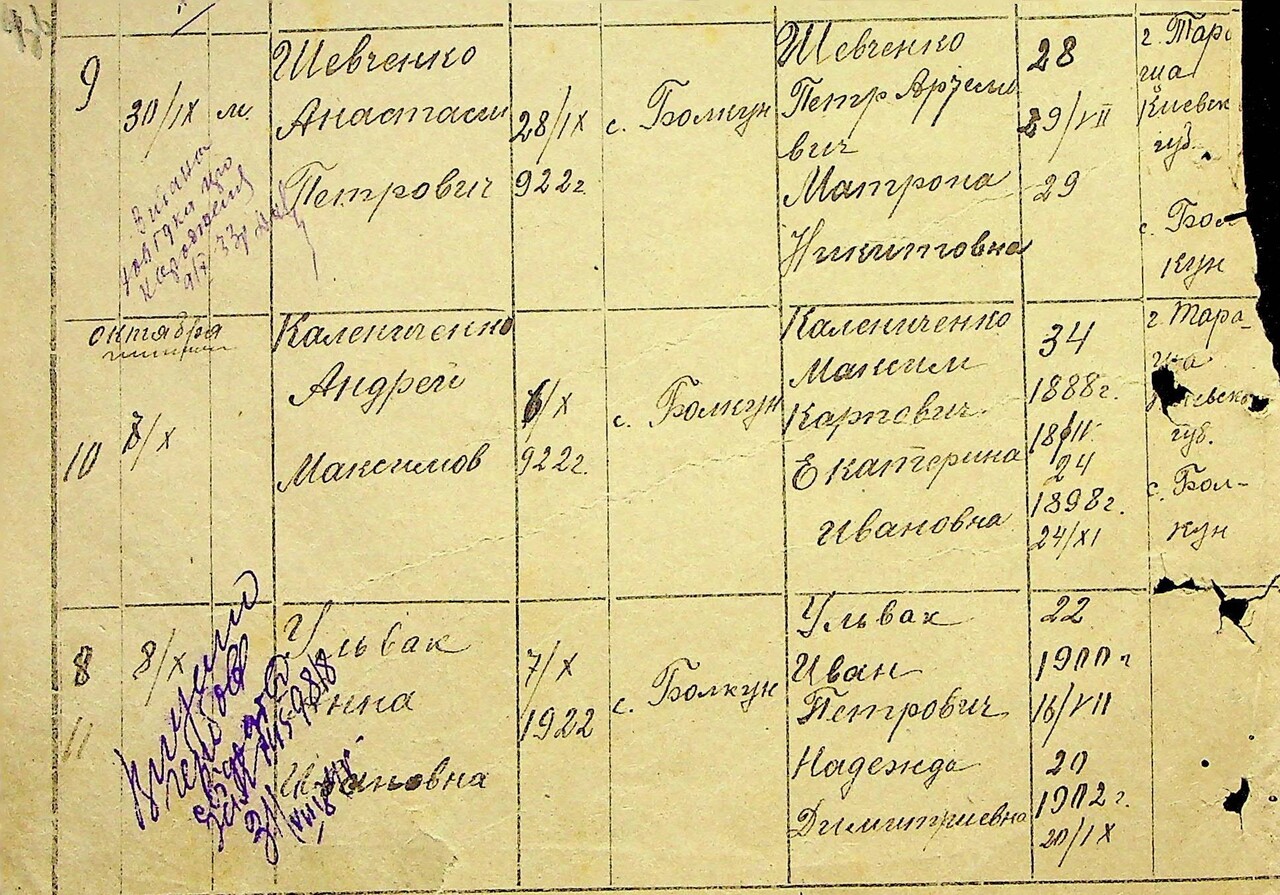 9
30/IX
м.
Шевченко
Анастасий
Петрович
28/IX
922г.
с. Болкун
Шевченко
Петр Артемо
вич
Матрона
Никитовна
28
29/VII
29
г. Тара
ща
Киевск
губ.
с. Бол
кун
Видана
октября
10
8/X
Калениченко
Андрей
Максимов
6/X
922г.
с. Болкун
Калениченко
Максим
Карпович
Екатерина
Ивановна
34
1888г.
24
1898г.
24/XI
г. Тара-
ща
губ.
с. Бол-
кун
8
11
8/X
Ульвак
Анна
Ивановна
7/X
1922
с. Болкун
Ульвак
Иван
Петрович
Надежда
Димитриевна
22
1900 г
16/VII
20
1902 г.
20/IX